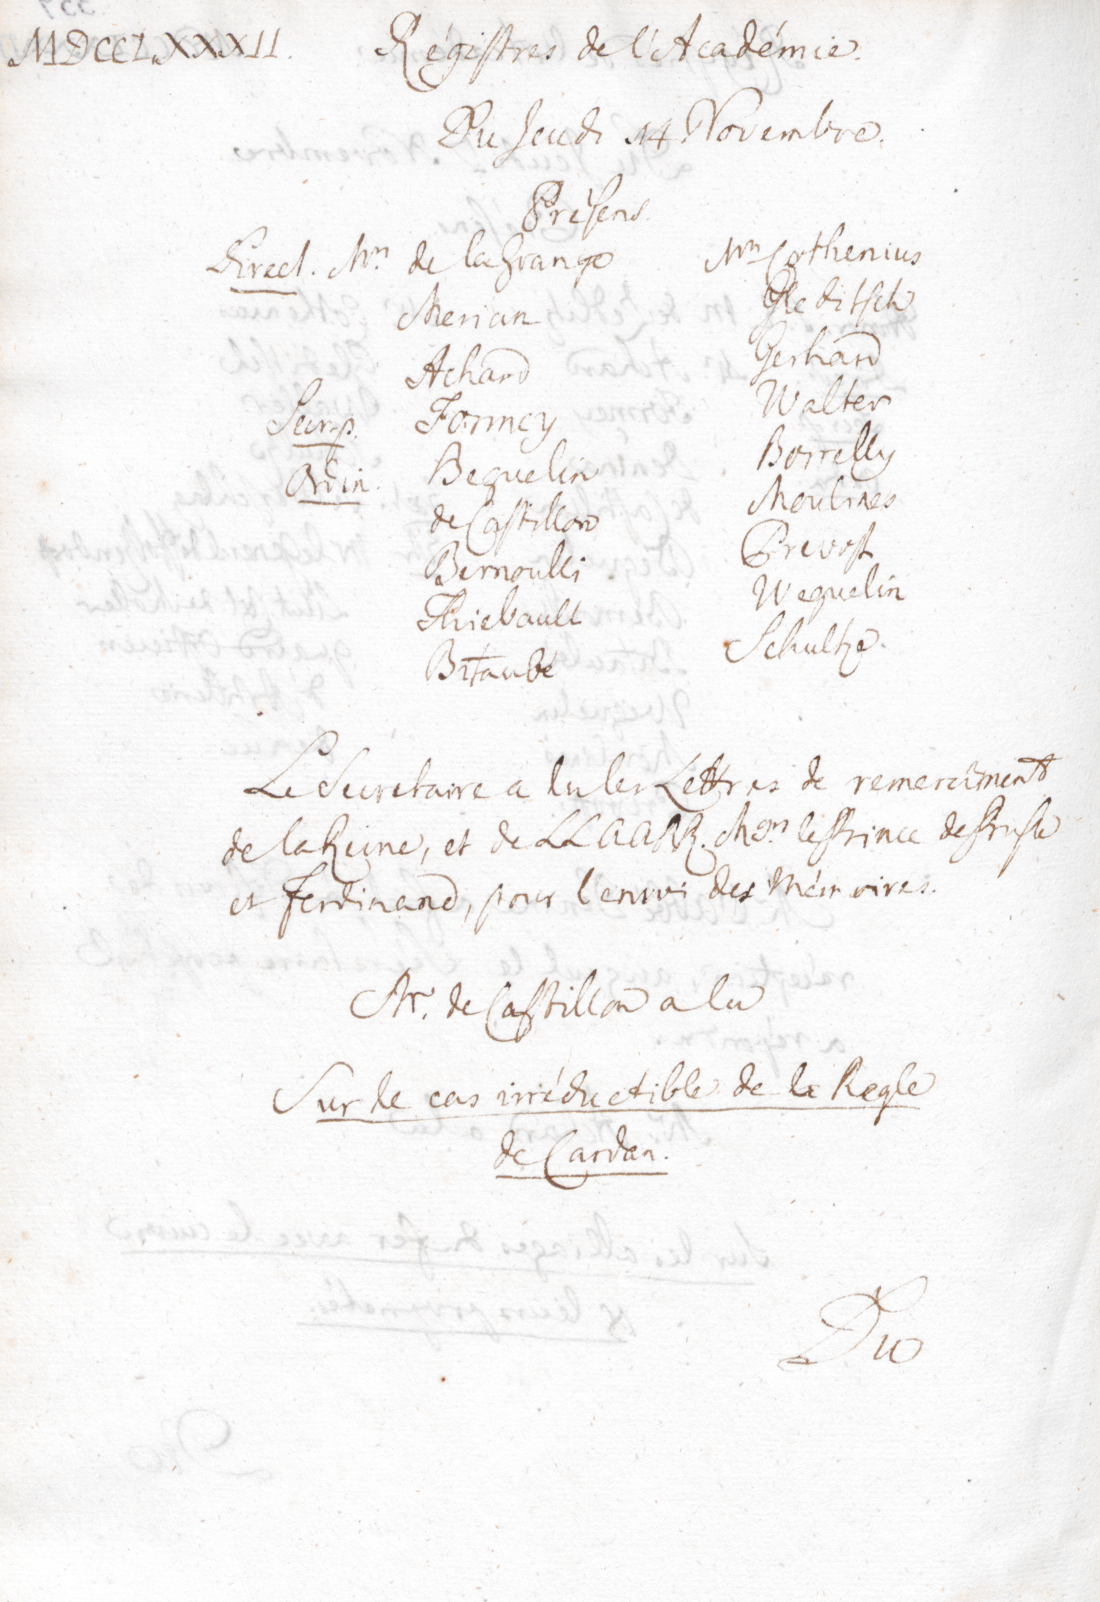 MDCCLXXXII. Régistres de l'Académie.
Du Jeudi 14 Novembre.
Présens.
Direct. Mrs. de la Grange
Merian
Achard
Secr. p. Formey
Ordin. Beguelin
de Castillon
Bernoulli
Thiebault
Bitaubé
Mrs Cothenius
Gleditsch
Gerhard
Walter
Borrelly
Moulines
Prevost
Weguelin
Schultze.
Le Secretaire a lu les Lettres de remerciment
de la Reine, et de LLAARR. Mgrs. les Prince de Prusse
et Ferdinand, pour l'envoi des Mémoires.
Mr. de Castillon a lu
Sur le cas irréductible de la Regle
de Cardan.
Du